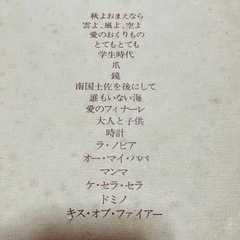 秋よおまえなら
雲よ、風よ、空よ
愛のおくりもの
とてもとても
学生時代
爪
鏡
南国土佐を後にして
誰もいない海
愛のフィナーレ
大人と子供
時計
ラ・ノビア
オー・マイ・パパ
マンマ
ケ・セラ・セラ
ドミノ
キス・オブ・ファイアー